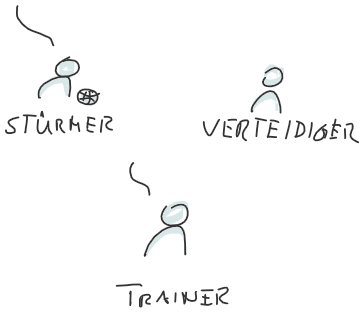 STÜRMER
VERTEIDIGER
TRAINER